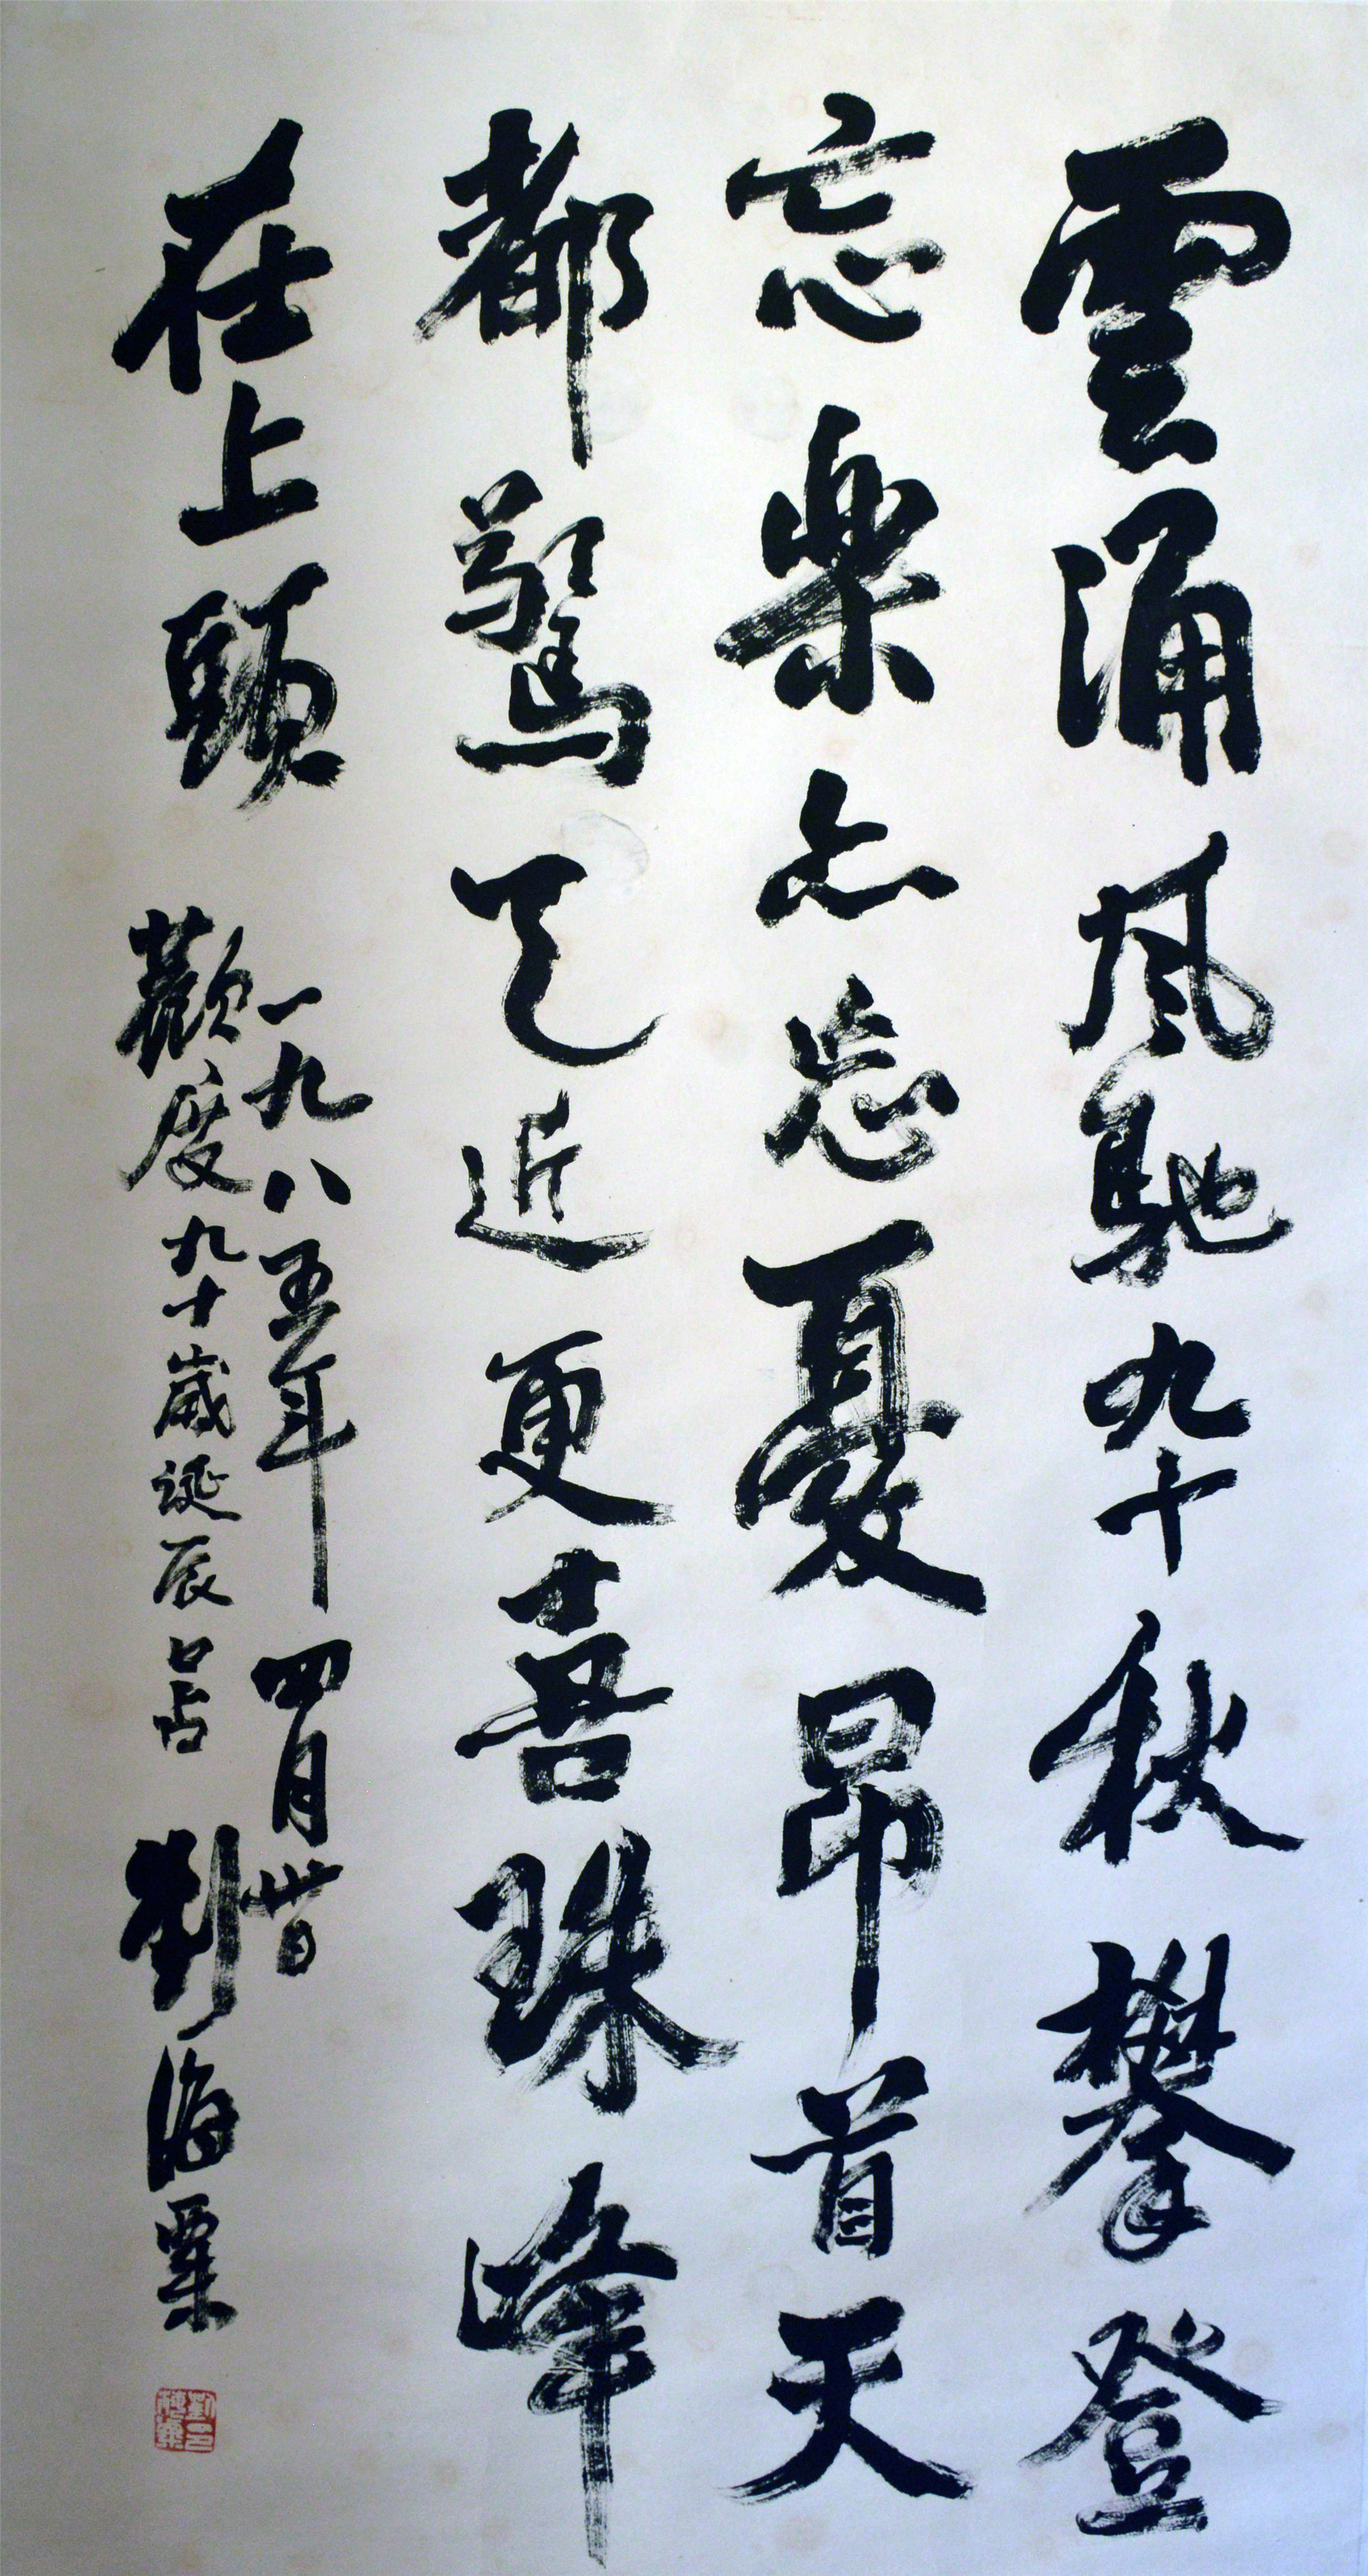 雲涌風馳九十秋攀登
忘樂亦忘憂昂首天
都驚天近更喜珠峰
在上頭
一九八五年四月卅日
歡度九十歲誕辰口占 劉海粟